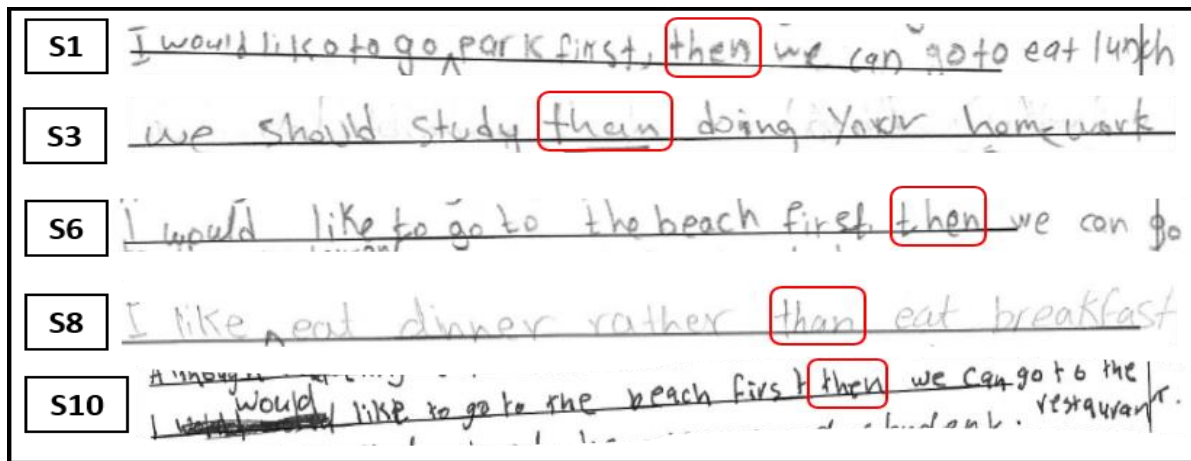 S1 I would like to go ^ park first, then we can go to eat lunch
S3 we should study than doing your homework
S6 I would like to go to the beach first then we can go
S8 I like ^ eat dinner rather than eat breakfast
would
S10 I like to go to the beach first then we can go to the
restaurant.
student.